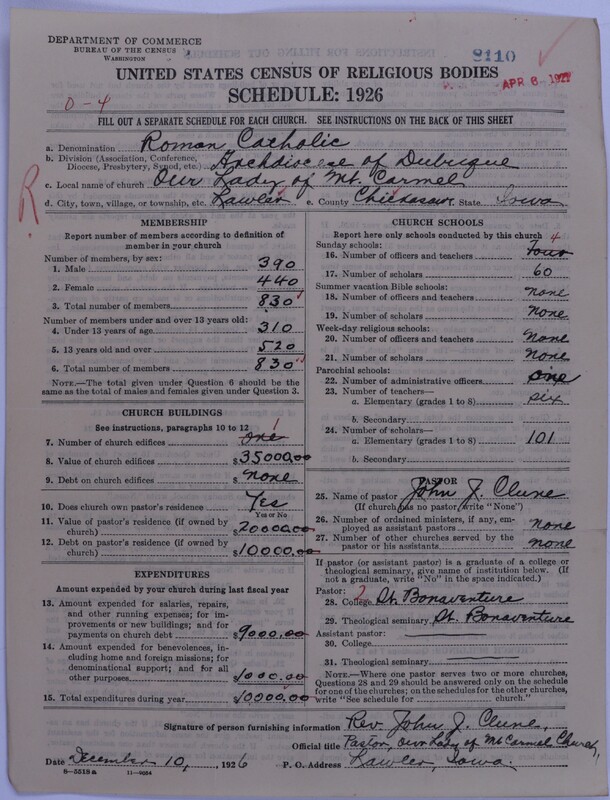 DEPARTMENT OF COMMERCE
BUREAU OF THE CENSUS
WASHINGTON
8110
APR 8 1927
UNITED STATES CENSUS OF RELIGIOUS BODIES
SCHEDULE: 1926
0-4
FILL OUT A SEPARATE SCHEDULE FOR EACH CHURCH. SEE INSTRUCTIONS ON THE BACK OF THIS SHEET
R
a. Denomination Roman Catholic
b. Division (Association, Conference, Diocese, Presbytery, Synod, etc.) Archdiocese of Dubuque
c. Local name of church Our Lady of Mt. Carmel
d. City, town, village, or township, etc. Lawler e. County Chickasaw State Iowa
MEMBERSHIP
Report number of members according to definition of
member in your church
Number of members, by sex:
1. Male 390
2. Female 440
3. Total number of members 830
Number of members under and over 13 years old:
4. Under 13 years of age 310
5. 13 years old and over 520
6. Total number of members 830
NOTE.—The total given under Question 6 should be
the same as the total of males and females given under Question 3.
CHURCH BUILDINGS
See instructions, paragraphs 10 to 12
7. Number of church edifices one 1
8. Value of church edifices $35000.00
9. Debt on church edifices $none
10. Does church own pastor's residence? Yes
Yes or No
11. Value of pastor's residence (if owned by
church) $20000.00
12. Debt on pastor's residence (if owned by
church) $10,000.00
EXPENDITURES
Amount expended by your church during last fiscal year
13. Amount expended for salaries, repairs,
and other running expenses; for im-
provements or new buildings; and for
payments on church debt $9000.00
14. Amount expended for benevolences,
including home and foreign missions; for
denominational support; and for all
other purposes $1000.00
15. Total expenditures during year $10000.00
CHURCH SCHOOLS
Report here only schools conducted by this church
Sunday schools:
16. Number of officers and teachers Four 4
17. Number of scholars 60
Summer vacation Bible schools:
18. Number of officers and teachers none
19. Number of scholars none
Week-day religious schools:
20. Number of officers and teachers none
21. Number of scholars none
Parochial schools:
22. Number of administrative officers one
23. Number of teachers—
a. Elementary (grades 1 to 8) six
b. Secondary
24. Number of scholars—
a. Elementary (grades 1 to 8) 101
b. Secondary
PASTOR
25. Name of pastor John J. Clune
(If church has no pastor, write "None")
26. Number of ordained ministers, if any, em-
ployed as assistant pastors none
27. Number of other churches served by the
pastor or his assistants none
If pastor (or assistant pastor) is a graduate of a college or
theological seminary, give name of institution below. (If
not a graduate, write "No" in the space indicated.)
Pastor:
28. College St. Bonaventure
29. Theological seminary St. Bonaventure
Assistant pastor:
30. College
31. Theological seminary
NOTE.—Where one pastor serves two or more churches,
Questions 28 and 29 should be answered only on the schedule
for one of the churches; on the schedules for the other churches,
write "See schedule for church."
Signature of person furnishing information Rev. John J. Clune,
Official title Pastor, Our Lady of Mt Carmel Church,
Date December 10, 1926 P. O. Address Lawler, Iowa.
8-5518a 11-9034